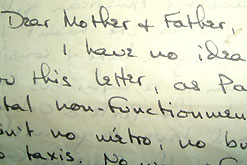 Dear Mother & Father,
I have no idea
this letter, as Pa
tal non-functionme
n't no métro, no b
taxis. No